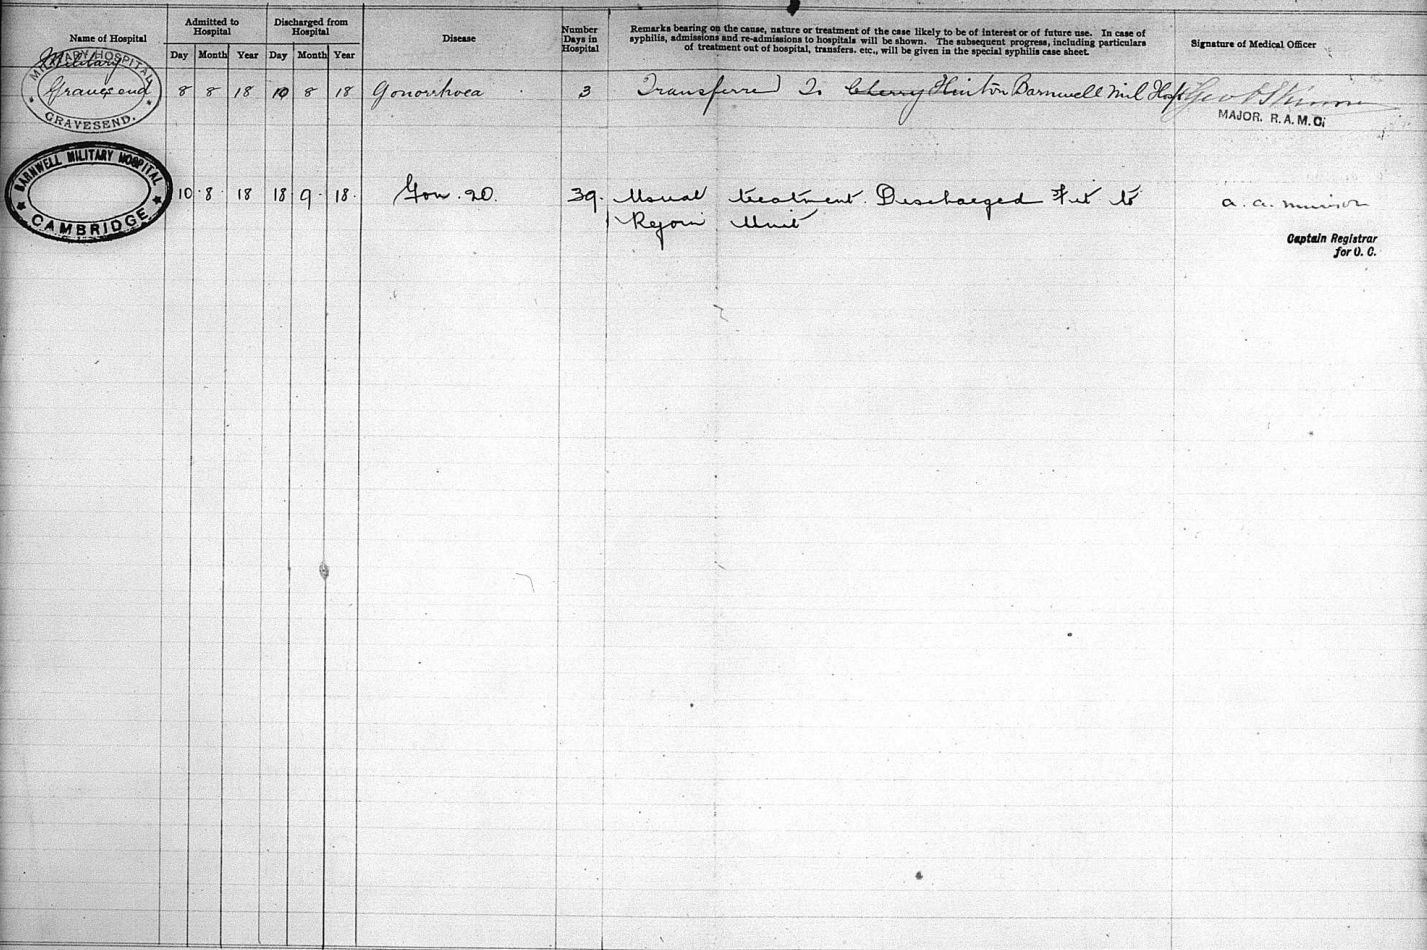 Name of Hospital
Admitted to
Hospital
Day Month Year
Discharged from
Hospital
Day Month Year
Disease
Number
Days in
Hospital
Remarks bearing on the cause, nature or treatment of the case likely to be of interest or of future use. In case of
syphilis, admissions and re-admissions to hospitals will be shown. The subsequent progress, including particulars
of treatment out of hospital, transfers. etc., will be given in the special syphilis case sheet.
Signature of Medical Officer
MILITARY HOSPITAL
GRAVESEND.
Military
Gravesend 8 8 18 10 8 18 Gonorrhoea 3 Transferred To Cherry Hinton Barnwell Mil Hosp Geo
MAJOR. R.A.M.C.
BARNWELL MILITARY HOSPITAL
CAMBRIDGE
10 8 18 18 9 18 Gon. 20. 39. Usual treatment. Discharged Fit to
Rejoin Unit
a. a.
Captain Registrar
for O. C.